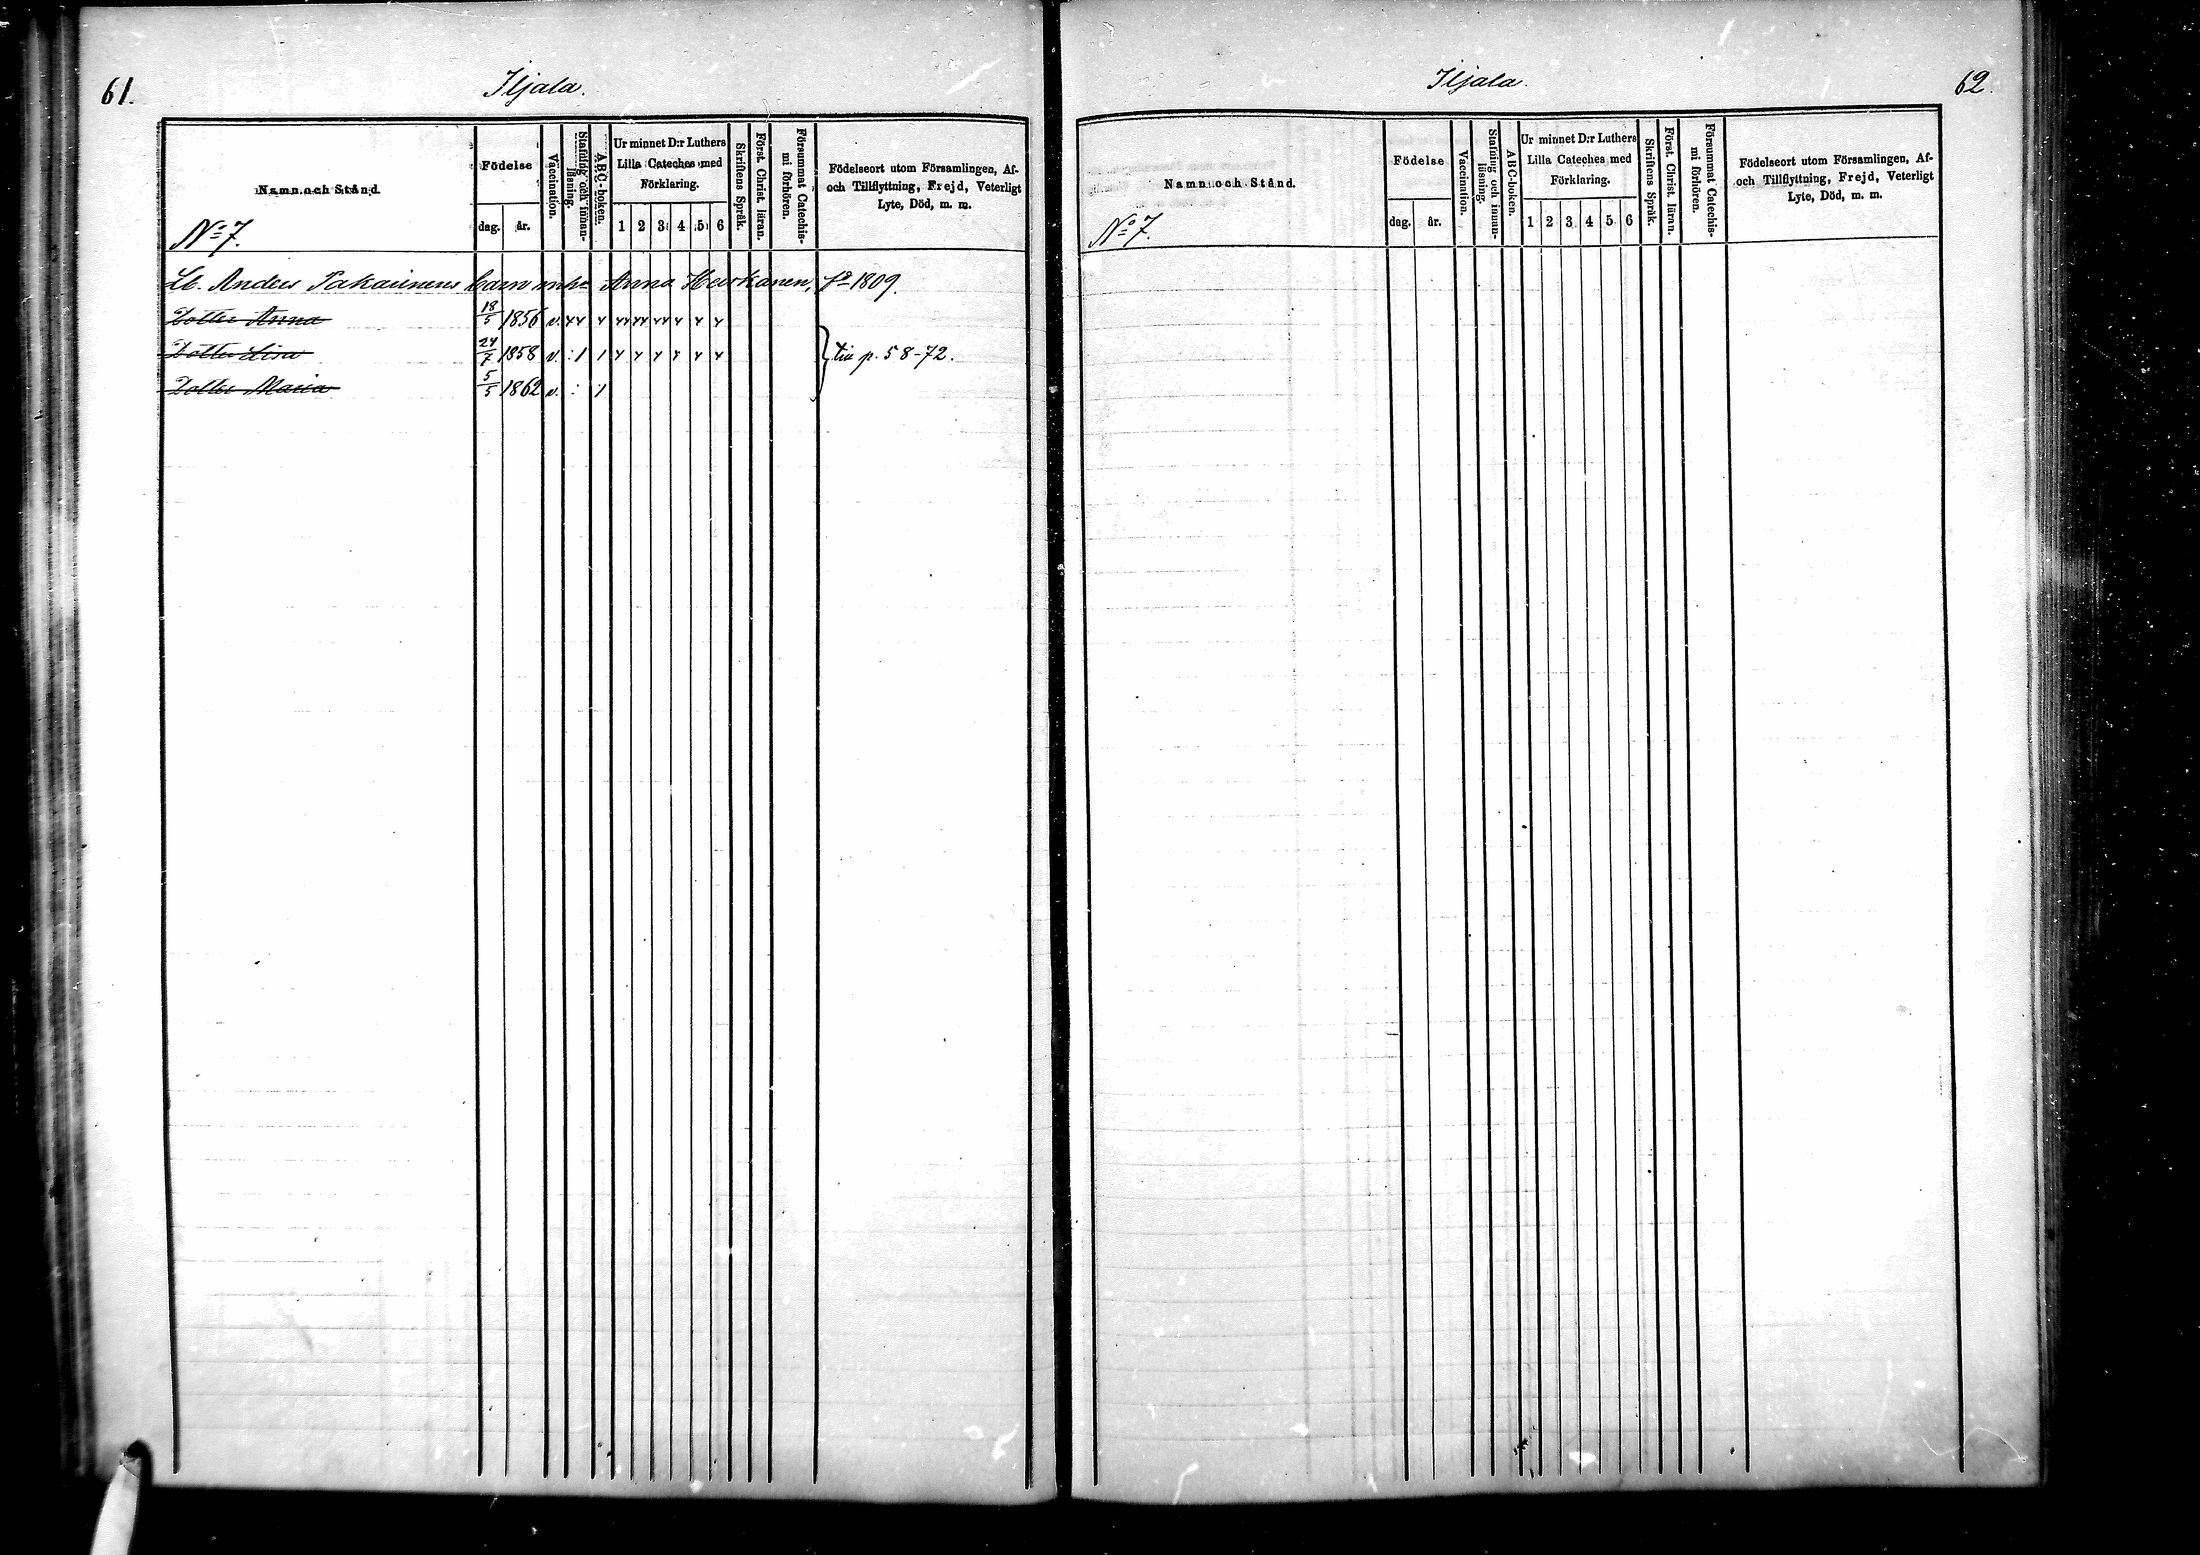 61.
Iljala.
Namn och Stånd.
Födelse
dag.
år.
Vaccination.
Stafning och innan-
läsning.
ABC-boken.
Ur minnet D:r Luthers
Lilla Cateches med
Förklaring.
1 2 3 4 5 6
Skriftens Språk.
Först. Christ. läran.
Försummat Catechis-
mi förhören.
Födelseort utom Församlingen, Af-
och Tillflyttning, Frejd, Veterligt
Lyte, Död, m. m.
No 7.
Lb. Anders Pakarinens barn m. Anna 1809.
Dotter Anna 18/5 1856 v.
Dotter Lisa 24/7 1858 v.
p. 58-72.
Dotter Maria 5/5 1862 v.
Iljala.
62.
Namn och Stånd.
Födelse
dag.
år.
Vaccination.
Stafning och innan-
läsning.
ABC-boken.
Ur minnet D:r Luthers
Lilla Cateches med
Förklaring.
1 2 3 4 5 6
Skriftens Språk.
Först. Christ. läran.
Försummat Catechis-
mi förhören.
Födelseort utom Församlingen, Af-
och Tillflyttning, Frejd, Veterligt
Lyte, Död, m. m.
No 7.